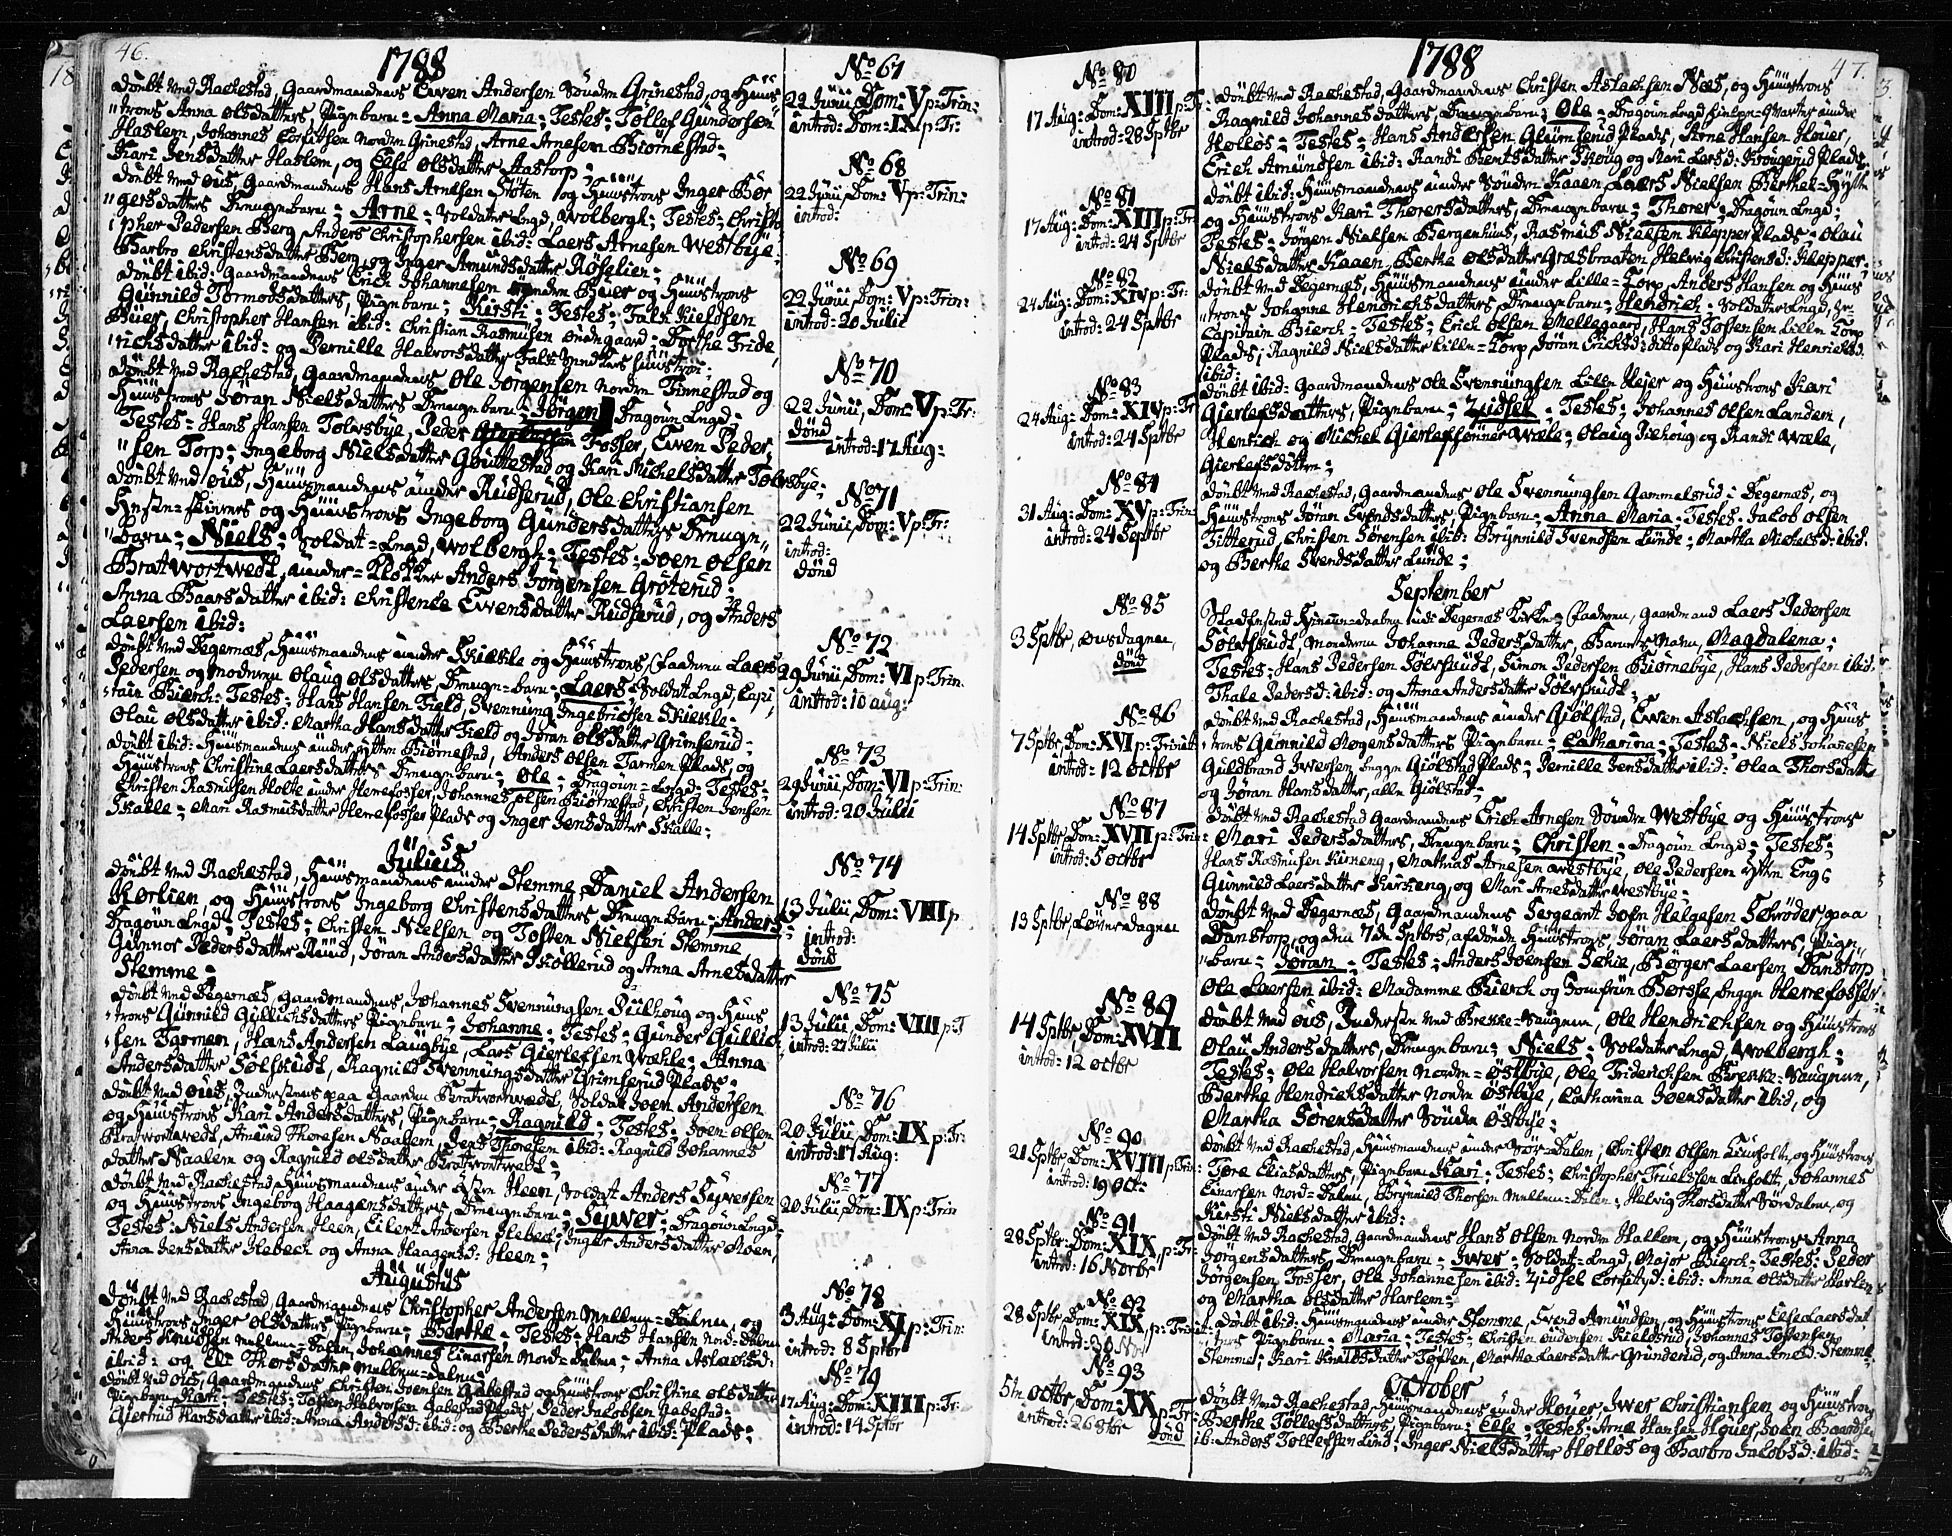 46.
1788
döbt ved Rachestad, Gaardmandens Ewen Andersen Söndre Grinestad, og Hüüs
trons Anna Olsdatters, Pigebarn = Anna Maria; Testes; Tollef Gündersen
Haslem, Johannes Nordre Grinestad, Arne Arnesen Biörnestad;
Kari Jensdatter Haslem, og Else Olsdatter Aastorp;
döbt ved öüs, Gaardmandens Hans Arnesen Stöten og Hüüstrons Inger Bör
gersdatters Drengebarn = Arne = Soldater Lægd, Wolbergh; Testes; Christo
pher Pedersen Berg Anders Christophersen ibid: Laers Arnesen Westbÿe;
Barbro Christensdatter Berg og Inger Amundsdatter Röselien;
döbt ibid: Gaardmandens Erich Johannesen Söndre Buer og Hüüstrons
Günnild Tormodsdatters, Pigebarn; Kirsti = Testes; Falk Kieldsen
Buer, Christopher Hansen ibid: Christian Rasmüsen öüdngaard = Dorthe Fride
richsdatter ibid: og Pernille Halvorsdatter Falk
döbt ved Rachestad, Gaardmandens Ole Jörgensen Nordre Finnestad og
Hüüstrons Jöran Nielsdatters Drengebarn; Jörgen Dragoun Lægd;
Testes = Hans Hansen Tolvsbÿe, Peder Fosser, Ewen Peder
sen Torp; Ingeborg Nielsdatter og Kari Michelsdatter Tolvsbÿe;
döbt ved öüs, Hüüsmandens ünder Rüdserüd, Ole Christiansen
og Hüüstrons Ingeborg Gündersdatters Drenge
barn; Niels; Soldat = Lægd, Wolbergh; Testes; Joen Olsen
Bratwortwedt, ünder = Klokker Anders Jörgensen Gröterud;
Anna Baarsdatter ibid: Christence Ewensdatter Rüdserüd, og Anders
Laersen ibid:
döbt ved Degernæs, Hüüsmandens ünder Skiekle og Hüüstrons, Faderen Laers
Pedersen og Moderen Olaug Olsdatters, Drenge=barn; Laers Soldat Lægd, Capi
tain Bierch = Testes; Hans Hansen Field, Svennüng Ingebrictsen Skiekle
Olau Olsdatter ibid: Martha Hansdatter Field og Jöran Olsdatter Grimserud;
döbt ibid: Hüüsmandens ünder Ÿttre Biörnestad, Anders Olsen Tarmen Plads, og
Hüüstrons Christine Laersdatters Drengebarn; Ole; Dragoun=Lægd = Testes;
Christen Rasmüsen Holte ünder Herrefosser, Johannes Olsen Biörnestad, Christen Jensen
Skalle = Mari Rasmüsdatter Herrefosser Plads og Inger Jensdatter Skalle;
Jülius
döbt ved Rachestad, Hüüsmandens ünder Stemme, Daniel Andersen
Horlien, og Hüüstrons Ingeborg Christensdatters Drengebarn; Anders;
Dragoün Lægd; Testes; Christen Nielsen og Tosten Nielsen Stemme
Günnor Pedersdatter Rüüd, Jöran Andersdatter Skollerüd og Anna Arnesdatter
Stemme;
döbt ved Degernæs, Gaardmandens Johannes Svennüngsen Püülhoüg og Hüüs
trons Günnild Güllichsdatters Pigebarn; Johanne; Testes; Günder Güllic
sen Tarmen, Hans Andersen Laugbÿe, Lars Gierlefsen Wæhle; Anna
Andersdatter Sölfskudt, Ragnild Svennüngsdatter Grimserud Plads;
döbt ved öüs, Inderstens paa Gaarden Bratwortwedt, Soldat Joen Andersen
og Hüüstrons Kari Andersdatters, Pigebarn; Ragnild; Testes; Joen Olsen
Bratwortwedt, Amünd Thoresen Naalem, Jens Thoresen ibid: Ragnild Johannes
datter Naalem og Ragnild Olsdatter Bratwortwedt;
döbt ved Rachestad Hüüsmandens ünder östre Heen, Soldat Anders Sÿversen
og Hüüstrons Ingeborg Haagensdatters, Drengebarn; Sÿwer; Dragoun Lægd
Testes; Niels Andersen Heen, Eilert Andersen Hebeck; Inger Andersdatter Moen,
Anna Jensdatter Hebech og Anna Haagensd: Heen;
Augüstüs
döbt ved Rachestad, Gaardmandens Christopher Andersen Mellem=Dalen, og
Hüüstrons Inger Olsdatters, Pigebarn; Berthe; Testes; Hans Hansen Nord=Dalen
Anders Knudsen Mellem=Dalen, Johannes Einarsen Nordre Dalen; Anna Aslachsd:
ibid: og Eli Thorsdatter Mellem=Dalen;
döbt ved öüs, Gaardmandens Christen Svensen Gabestad og Hüüstrons Christine Olsdatters
Pigebarn, Kari; Testes; Tosten Halvorsen Gabestad Plads, Peder Jacobsen Gabestad;
Giertrud Hansdatter ibid: Anna Andersd: ibid: og Berthe Pedersdatter ibid: Plads;
No 67
22 Junii, Dom: V p: Trin:
introd: Dom: IX p: Tr:
No 68
22 Junii, Dom: V p: Trin:
introd:
No 69
22 Junii, Dom: V p: Trin:
introd: 20 Julii
No 70
22 Junii, Dom: V p: Tr:
Dönd
introd: 17 Aug:
No 71
22 Junii, Dom: V p: Tr:
introd:
Dönd
No 72
29 Junii, Dom: VI p: Trin:
introd: 10 aug:
No 73
29 Junii, Dom: VI p: Trin:
introd: 20 Julii
No 74
13 Julii, Dom: VIII p
introd:
Dönd
No 75
13 Julii, Dom: VIII p: T
introd: 27 Julii
No 76
20 Julii, Dom: IX p: Tr:
introd: 17 Aug:
No 77
20 Julii, Dom: IX p: Trin
No 78
3 Aug: Dom: XI p: Trin:
introd: 8 Sptbr
No 79
17 Aug: Dom: XIII p: Tr:
introd: 14 Sptbr
No 80
17 Aug: Dom: XIII p: Tr:
introd: 28 Sptbr
No 81
17 Aug: Dom: XIII p: Tr:
introd: 24 Sptbr
No 82
24 Aug: Dom: XIV p: Tr:
introd: 24 Sptbr
No 83
24 Aug: Dom: XIV p: Tr
introd: 24 Sptbr
No 84
31 Aug: Dom: XV p: Trin:
introd: 24 Septbr
No 85
3 Sptbr, onsdagen,
Dönd
No 86
7 Sptbr, Dom: XVI p: Trinit
introd: 12 octbr
No 87
14 Sptbr, Dom: XVII p: Trin:
introd: 5 octbr
No 88
13 Sptbr, Löverdagen
No 89
14 Sptbr, Dom: XVII
introd: 12 octbr
No 90
21 Sptbr, Dom: XVIII p: Trin:
introd: 19 Oct:
No 91
28 Sptbr: Dom: XIX p: Tr:
introd: 16 Novbr
No 92
28 Sptbr, Dom: XIX, p: Trinit
introd: 30 Nov
No 93
5te octbr, Dom: XX p: Tr:
introd: 26 8br
Dönd
1788
47.
döbt ved Rachestad, Gaardmandens Christen Aslachsen Næs, og Hüüstrons
Ragnild Johannesdatters, Drengebarn; Ole = Dragoun Lægd
Holleös = Testes; Hans Andersen Glümserud Plads, Arne Hansen Höüer,
Erich Amündsen ibid: Randi Berntsdatter Skoüg og Mari Larsd: Krougerud Plads
döbt ibid: Hüüsmandens ünder Söndre Kaaen Laers Nielsen Berthel=Hÿtte
og Hüüstrons Kari Thoresdatters, Drengebarn; Thorer; Dragoun Lægd;
Testes; Jörgen Nielsen Bergenhüüs, Rasmüs Nielsen Klepper Plads; Olau
Nielsdatter Kaaen, Berthe Olsdatter Græsbraaten, Helwig Christensd: Klepper;
döbt ved Degernæs, Hüüsmandens ünder Lille=Torp, Anders Hansen og Hüüs
trons Johanne Hendrichsdatters, Drengebarn; Hendrich; Soldater Lægd, Hr
Capitain Bierch; Testes; Erich Olsen Mellegaard, Hans Tostensen Lillen Torp
Plads; Ragnild Nielsdatter Lille=Torp, Jöran Erichsd: ditto Plads og Kari Henrichsd.
ibid:
döbt ibid: Gaardmandens Ole Svennüngsen Lillen Hejer og Hüüstrons Kari
Gierlefsdatters, Pigebarn; Zidsel; Testes; Johannes Olsen Landem,
Henrich og Michel Gierlefsönner Wæle; Olaug Piehoüg og Randi Wæle,
Gierlefsdöttre;
döbt ved Rachestad, Gaardmandens Ole Svennüngsen Gammelsrüd i Degernæs, og
Hüüstrons Jöran Svendsdatters, Pigebarn; Anna Maria; Testes; Jacob Olsen
Titterud, Christen Sörensen ibid: Brÿnnild Svendsen Lünde; Martha Michelsd: ibid:
og Berthe Svendsdatter Lünde;
September
Stadfæstet Hiemme=daaben udi Degernæs Kirke; Faderen, Gaardmand Laers Pedersen
Sölvskudt, Moderen Johanne Pedersdatter, Barnets Navn, Magdalena;
Testes; Hans Pedersen Sölvskudt, Simon Pedersen Biörnebÿe, Hans Pedersen ibid:
Thale Pedersd: ibid: og Anna Andersdatter Sölvskudt;
döbt ved Rachestad, Hüüsmandens ünder Giölstad, Ewen Aslachsen, og Hüüs
trons Günnild Mogensdatters Pigebarn; Catharina; Testes; Niels Johannesen
Guldbrand Iwersen begge Giölstad Plads; Pernille Jensdatter ibid: Olea Thorsdatter
og Jöran Hansdatter, alle Giölstad;
döbt ved Rachestad Gaardmandens Erich Arnesen Söndre Westbÿe og Hüüstrons
Mari Pedersdatters, Drengebarn; Christen = Dragoun Lægd = Testes;
Hans Rasmusen Kirkeng, Mathias Arnesen Westbÿe, Ole Pedersen Ÿttre Eng;
Günnild Laersdatter Kirkeng, og Mari Arnesdatter Westbÿe;
döbt ved Degernæs, Gaardmandens Sergeant John Helgesen Schröder paa
Danstorp, og den 7de Sptbr, afdöde Hüüstrons, Jöran Laersdatters, Pige
barn; Jöran; Testes; Anders Joensen Sekie, Börger Laersen Danstorp
Ole Laersen ibid: Madamme Bierch og Jomfrue Borsse, begge Herrefosser
döbt ved öüs, Indersten ved Brekke=Saugene, Ole Hendrichsen og Hüüstrons
Olau Andersdatters, Drengebarn; Niels; Soldater Lægd, Wolbergh;
Testes; Ole Halvorsen Nordre=östbÿe, Ole Friderichsen Brekke=Saugene,
Berthe Hendrichsdatter Nordre östbÿe, Catharina Joensdatter ibid, og
Martha Sörensdatter Söndre östbÿe;
döbt ved Rachestad, Hüüsmandens ünder Sör=Dalen, Christen Olsen Linholt, og Hüüstrons
Tore Eliasdatters, Pigebarn Kari; Testes; Christopher Truelssen Linholt, Johannes
Einarsen Nord=Dalen, Brÿnnild Thorsen Mellem=Dalen; Helvig Thorsdatter Sördalen, og
Kirsti Nielsdatter ibid:
döbt ved Rachestad, Gaardmandens Hans Olsen Nordre Hallem, og Hüüstrons Anna
Jörgensdatters, Drengebarn; Iwer; Soldat=Lægd, Major Bierch=Testes; Peder
Jörgensen Fosser, Ole Johannesen ibid: Zidsel ibid: Anna Olsdatter Harlem
og Martha Olsdatter Harlem;
döbt ibid: Hüüsmandens ünder Stemme, Svend Amündsen, og Hüüstrons Else Laersdat
ters Pigebarn; Maria; Testes; Christen Kielstrüd Johannes Tostensen
Stemme; Kari Knüdsdatter Toften, Martha Laersdatter Gründerüd, og Anna Arnesd: Stemme;
October
döbt ved Rachestad, Hüüsmandens ünder Höüer, Iwer Christiansen og Hüüstrons
Berthe Tollefsdatters, Pigebarn; Else; Testes; Arne Hansen Höüer, Joen Baardsen
ib: Anders Tollefsen Lund; Inger Nielsdatter Holleös og Barbro Jacobsd: ibid: